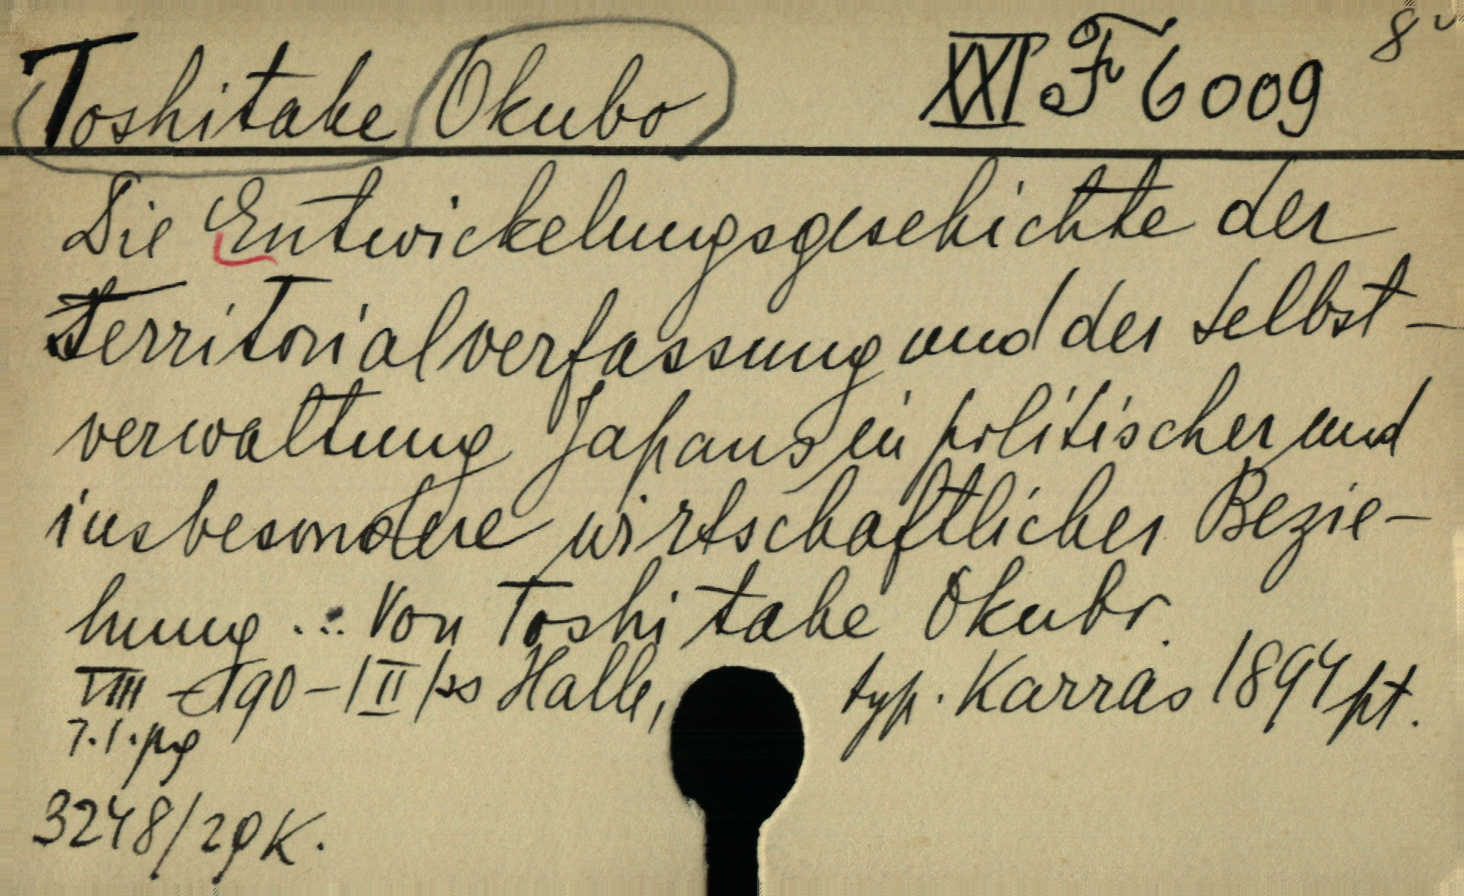 Toshitake Okubo XXI F 6009 8°
Die Entwickelungsgeschichte der
Territorialverfassung und der Selbst-
verwaltung Japans in politischer und
insbesondere wirtschaftlicher Bezie-
hung ... Von Toshitake Okubo.
VIII 190 - Halle, typ. Karras 1894 pt.
7.1.
3248/29 K.